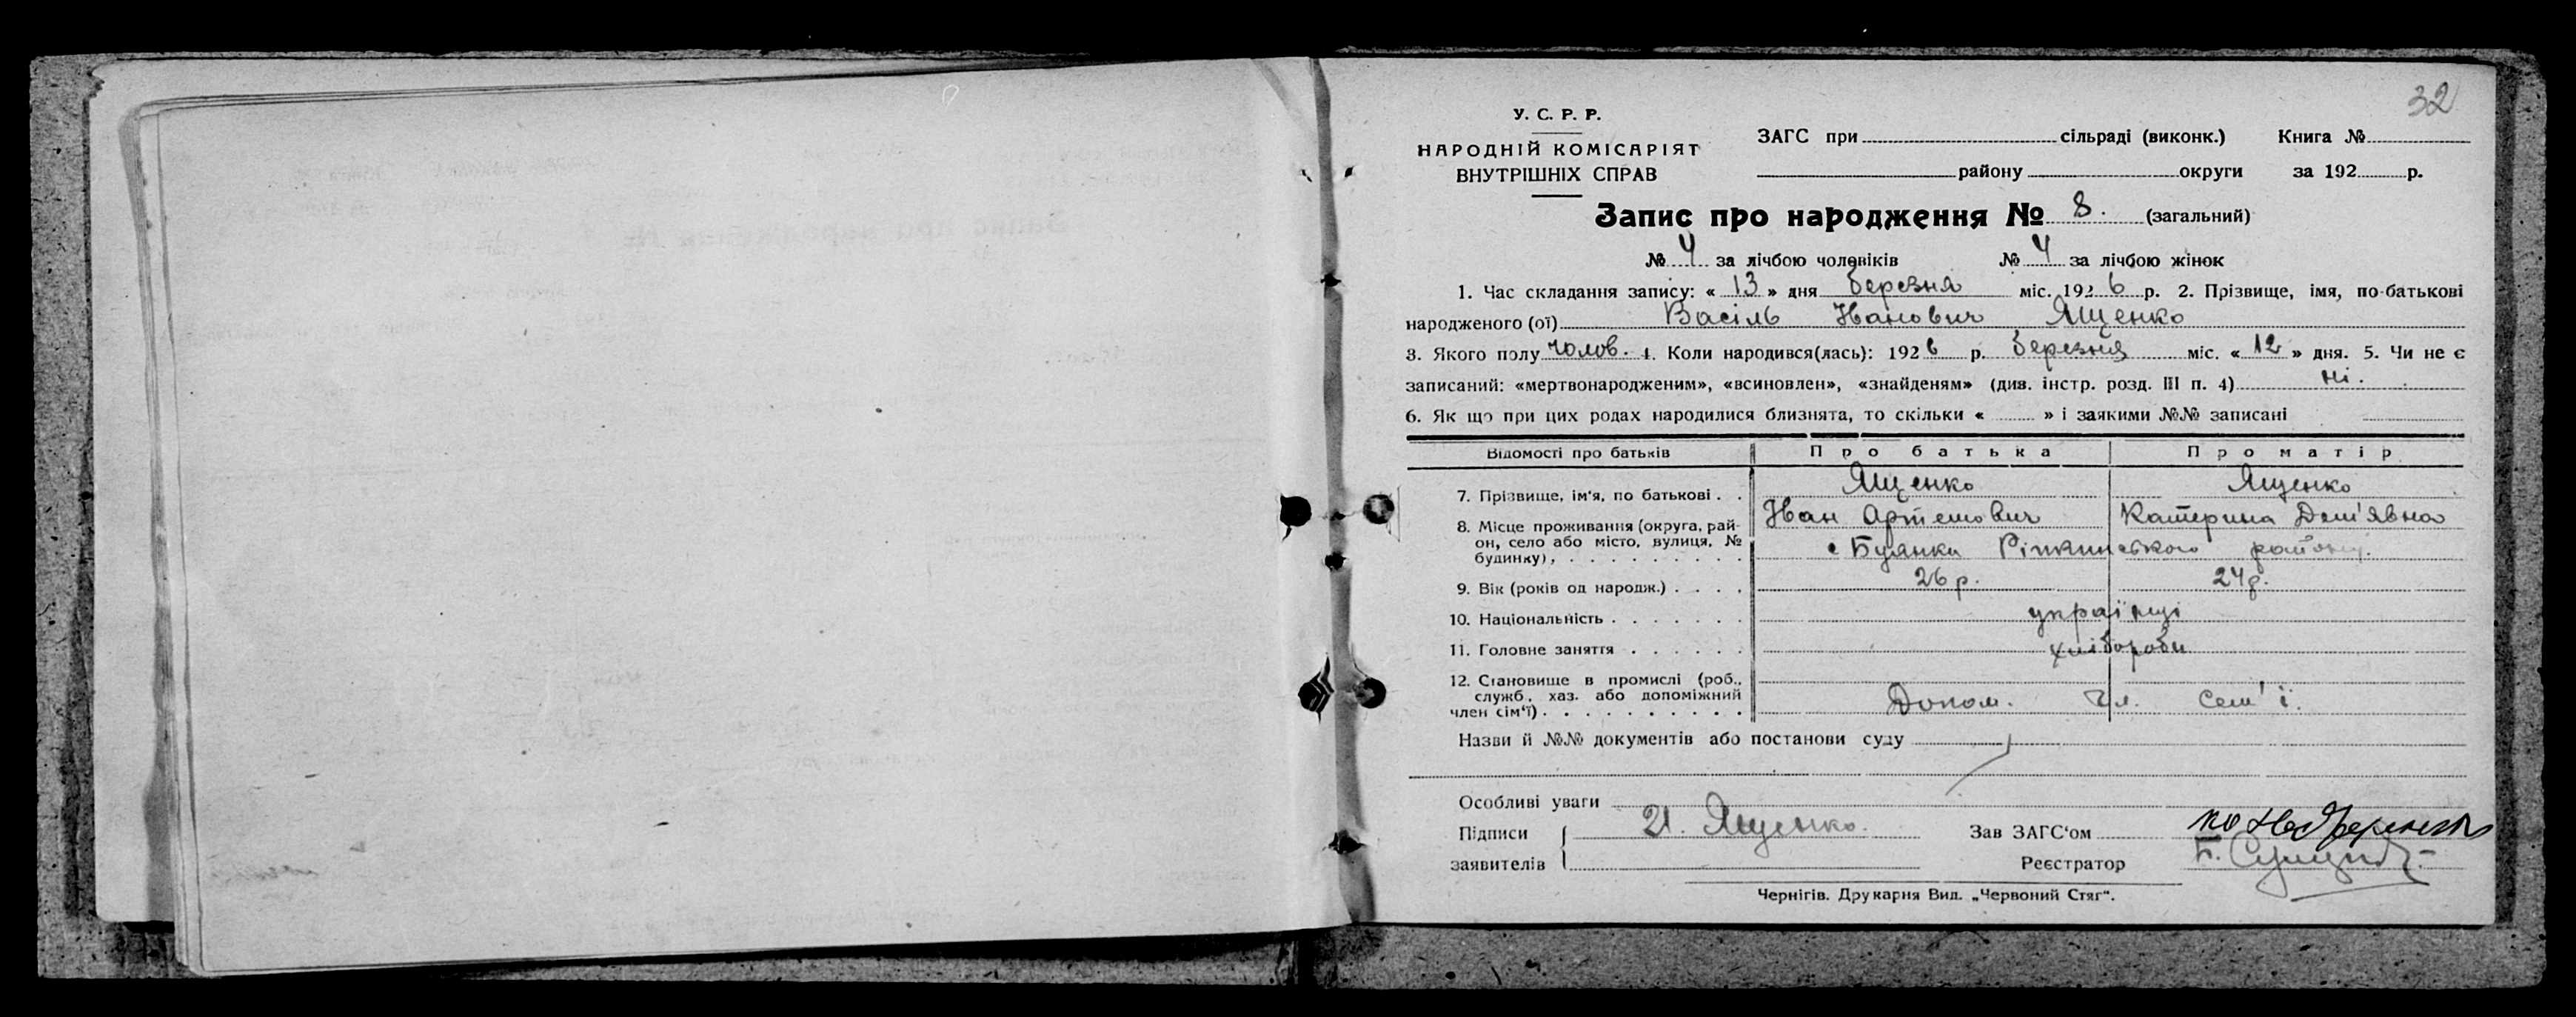 32
У. С. Р. Р.
НАРОДНІЙ КОМІСАРІЯТ
ВНУТРІШНІХ СПРАВ
ЗАГС при сільраді (виконк.) Книга №
району округи за 192 р.
Запис про народження № 8. (загальний)
№ 4 за лічбою чоловіків № 4 за лічбою жінок
1. Час складання запису: « 13 » дня березня міс. 192 6 р. 2. Прізвище, імя, по-батькові
народженого (ої) Васіль Іванович Ященко
3. Якого полу чолов. 4. Коли народився(лась): 192 6 р. березня міс. « 12 » дня. 5. Чи не є
записаний: «мертвонародженим», «всиновлен», «знайденям» (див. інстр. розд. III п. 4) ні.
6. Як що при цих родах народилися близнята, то скільки « » і заякими №№ записані
Відомості про батьків Про батька Про матір
7. Прізвище, ім'я, по батькові . . Ященко Ященко
Іван Артемович Катерина Дем'явна
8. Місце проживання (округа, рай-
он, село або місто, вулиця, №
будинку), . . . . . . . . . . с Буянки Ріпкинського району.
9. Вік (років од народж.) . . . . 26 р. 24 р.
10. Національність . . . . . . . українці
11. Головне заняття . . . . . . хлібороби
12. Становище в промислі (роб.,
служб, хаз. або допоміжний
член сім'ї) . . . . . . . . . . Допом. чл. сем'ї.
Назви й №№ документів або постанови суду
Особливі уваги
Підписи И. Ященко. Зав ЗАГС'ом
заявителів Реєстратор
Чернігів. Друкарня Вид. „Червоний Стяг".